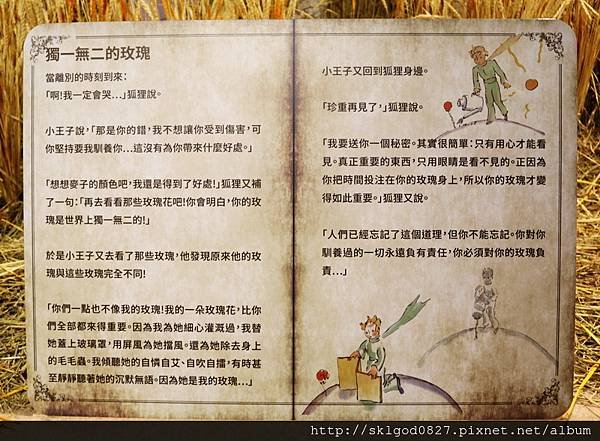 獨一無二的玫瑰
當離別的時刻到來：
「啊！我一定會哭…」狐狸說。
小王子說，「那是你的錯，我不想讓你受到傷害，可
你堅持要我馴養你…這沒有為你帶來什麼好處。」
「想想麥子的顏色吧，我還是得到了好處！」狐狸又補
了一句：「再去看看那些玫瑰花吧！你會明白，你的玫
瑰是世界上獨一無二的！」
於是小王子又去看了那些玫瑰，他發現原來他的玫
瑰與這些玫瑰完全不同！
「你們一點也不像我的玫瑰！我的一朵玫瑰花，比你
們全部都來得重要。因為我為她細心灌溉過，我替
她蓋上玻璃罩，用屏風為她擋風。還為她除去身上
的毛毛蟲。我傾聽她的自憐自艾、自吹自擂，有時甚
至靜靜聽著她的沉默無語。因為她是我的玫瑰…」
小王子又回到狐狸身邊。
「珍重再見了，」狐狸說。
「我要送你一個秘密。其實很簡單：只有用心才能看
見。真正重要的東西，只用眼睛是看不見的。正因為
你把時間投注在你的玫瑰身上，所以你的玫瑰才變
得如此重要。」狐狸又說。
「人們已經忘記了這個道理，但你不能忘記。你對你
馴養過的一切永遠負有責任，你必須對你的玫瑰負
責…」
http://sklgod0827.pixnet.net/album